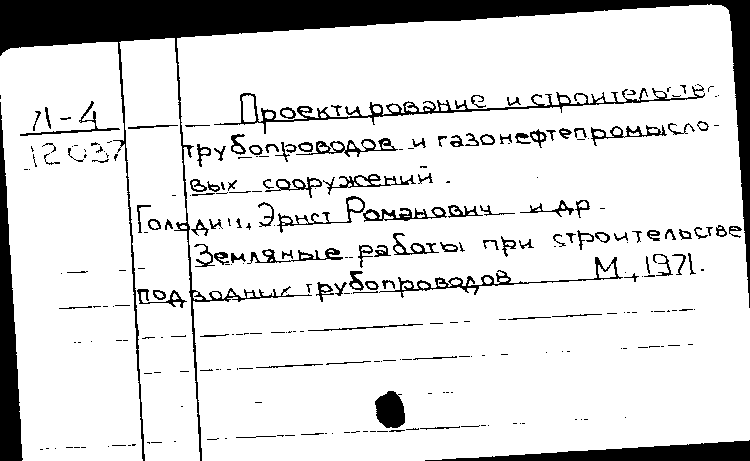 Л-4
12037
Проектирование и строительство
трубопроводов и газонефтепромысло-
вых сооружений.
Гольдин, Эрнст Романович и др.
Земляные работы при строительстве
подводных трубопроводов М., 1971.